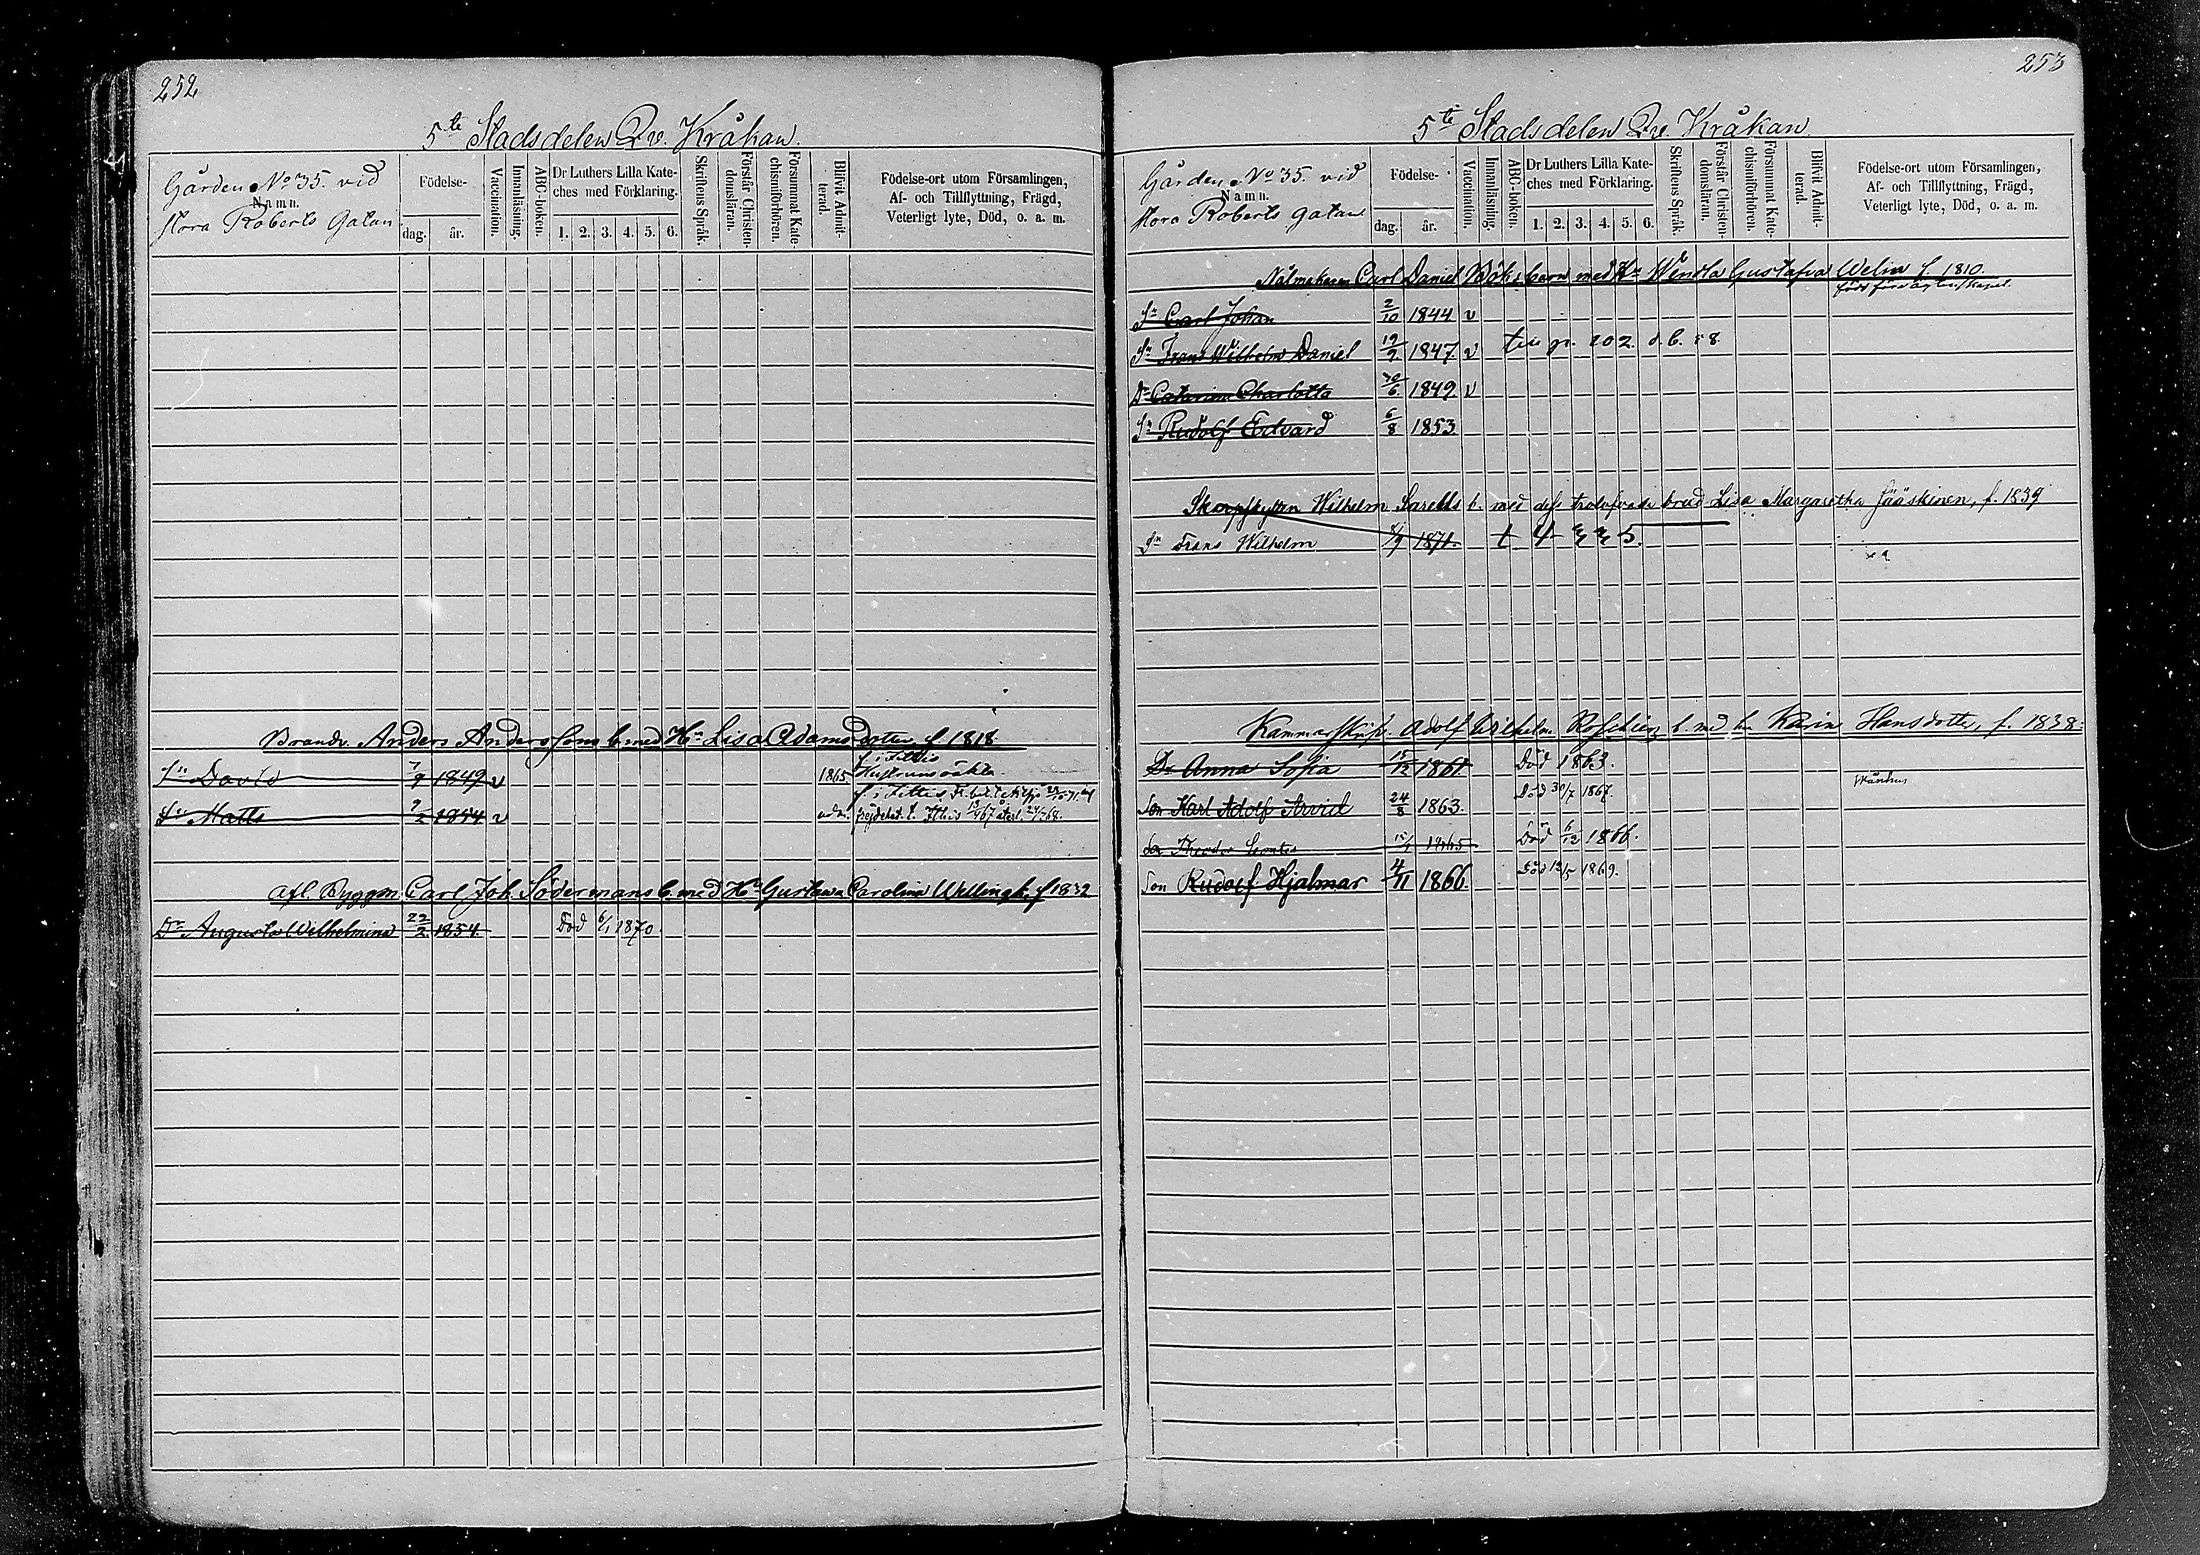 252
5te Stadsdelen Qv. Kråkan.
Gården No 35. vid
Namn.
Stora Roberts Gatan
Födelse-
dag. år.
Vaccination.
Innanläsning.
ABC-boken.
Dr Luthers Lilla Kate-
ches med Förklaring.
1. 2. 3. 4. 5. 6.
Skriftens Språk.
Förstår Christen-
domsläran.
Försummat Kate-
chismiförhören.
Blifvit Admit-
terad.
Födelse-ort utom Församlingen,
Af- och Tillflyttning, Frägd,
Veterligt lyte, Död, o. a. m.
Brandv. Anders Anderssons b. med Hu Lisa Adamsdotter f 1818
Sn David 7/9 1849 v 1865
Sn Matts 9/2 1854 v
Afl. Byggm. Carl Joh. Södermans b. med Hu Gustava Carolina Wellingk, f 1832
Dr Augusta Wilhelmina 22/2 1854. Död 6/1 1870.
253
5te Stadsdelen Qv. Kråkan
Gården No 35. vid
Namn.
Stora Roberts gatan
Födelse-
dag. år.
Vaccination.
Innanläsning.
ABC-boken.
Dr Luthers Lilla Kate-
ches med Förklaring.
1. 2. 3. 4. 5. 6.
Skriftens Språk.
Förstår Christen-
domsläran.
Försummat Kate-
chismiförhören.
Blifvit Admit-
terad.
Födelse-ort utom Församlingen,
Af- och Tillflyttning, Frägd,
Veterligt lyte, Död, o. a. m.
Nålmakaren Carl Daniel Böks barn med Hu Wendla Gustafva Welin f. 1810.
född före äktenskapet.
Sn Carl Johan 2/10 1844 v
Sn Frans Wilhelm Daniel 19/2 1847. v
Dr Catarina Charlotta 30/6 1849 v
Sn Rudolf Edvard 6/8 1853
Skarpskytten Wilhelm b. med dess trolofvade brud Lisa Margaretha Jääskinen, f. 1839
Sn Frans Wilhelm 1871.
Adolf Wilhelm b. med h. Karin Hansdotter, f. 1838.
Dr Anna Sofia 15/12 1861. Död 1863.
Son Karl Adolf Arvid 24/8 1863. Död 30/7 1867.
Son Theodor 1865 Död 6/12 1866.
Son Rudolf Hjalmar 4/11 1866. Död 12/5 1869.